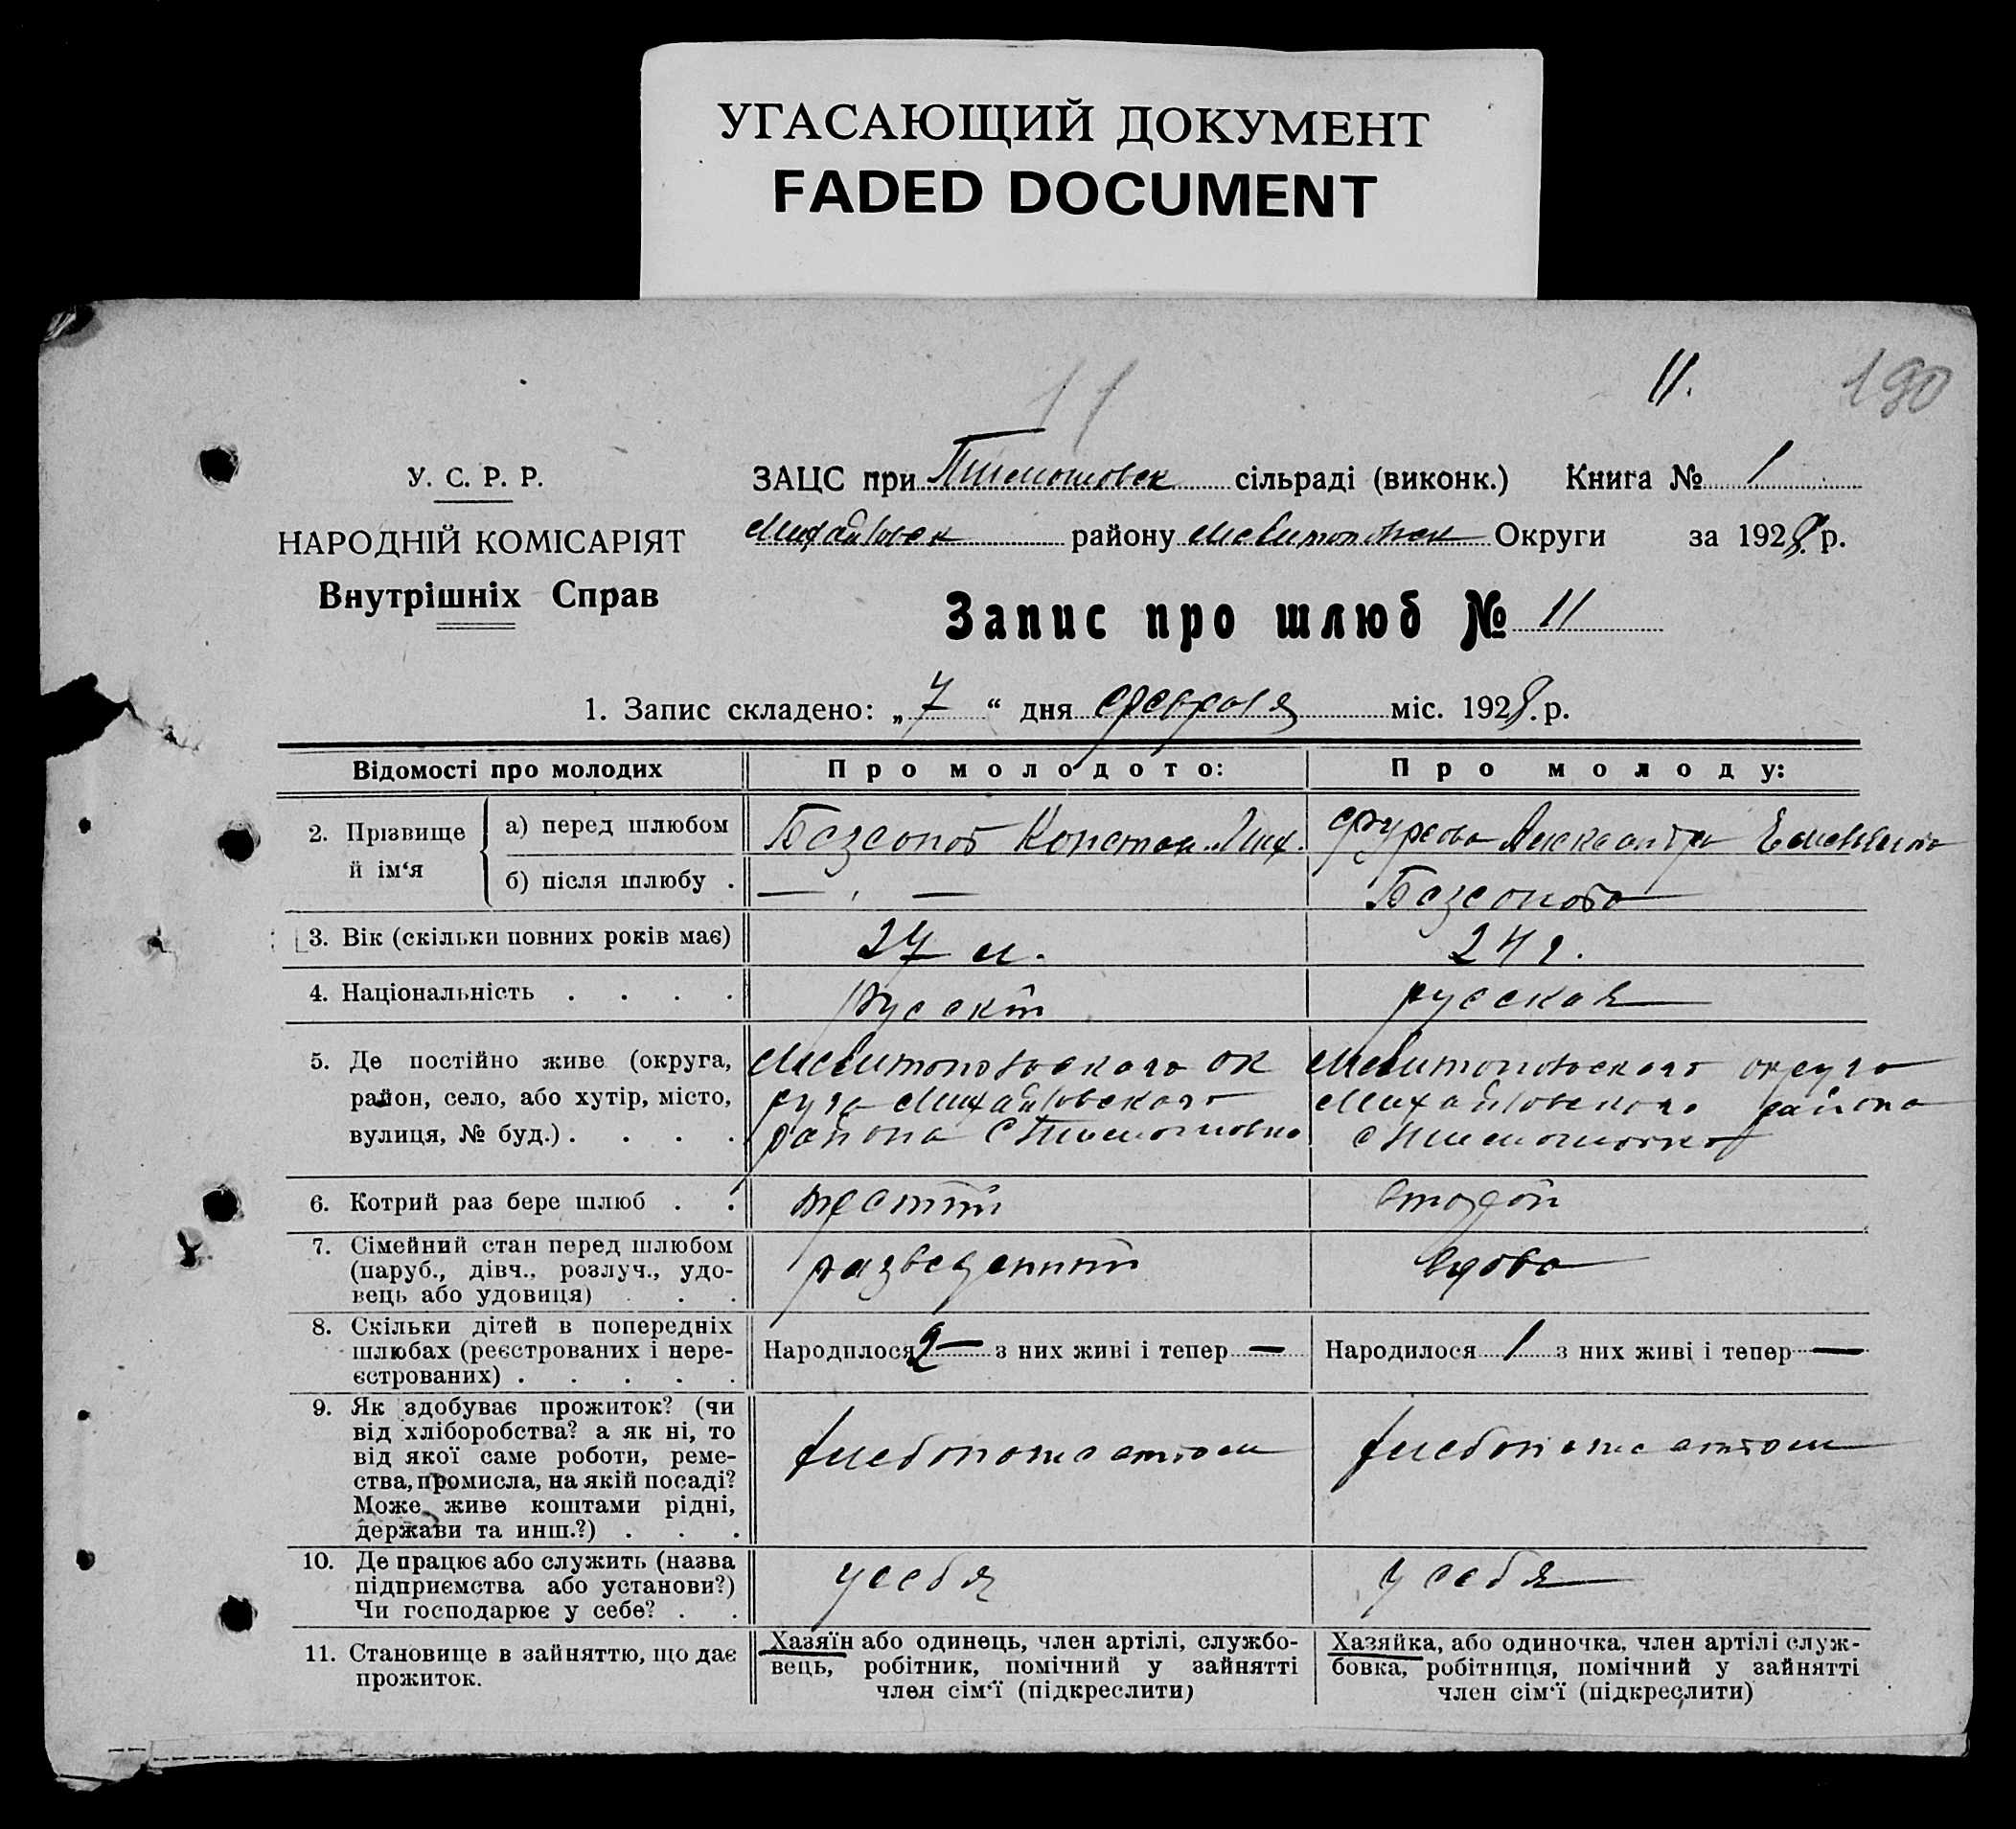 УГАСАЮЩИЙ ДОКУМЕНТ
FADED DOCUMENT
11
11. 190
У. С. Р. Р.
НАРОДНІЙ КОМІСАРІЯТ
Внутрішніх Справ
ЗАЦС при Тимошовск сільраді (виконк.) Книга № 1
Михайловск району Мелитопольск Округи за 1928 р.
Запис про шлюб № 11
1. Запис складено: „ 7 “ дня февраля міс. 1928. р.
Відомості про молодих Про молодого: Про молоду:
2. Прізвище й ім‘я
а) перед шлюбом Безсонов Констан. Мих. Фурсова Александра
б) після шлюбу . — — Безсонова
3. Вік (скільки повних років має) 27 л. 24 г.
4. Національність . . . . русский русская
5. Де постійно живе (округа, район, село, або хутір, місто, вулиця, № буд.) . . . .
Мелитопольского ок
руга Михайловского
района с Тимошовка
Мелитопольского округа
Михайловского района
с Тимошовка
6. Котрий раз бере шлюб . . третий второй
7. Сімейний стан перед шлюбом
(паруб., дівч., розлуч., удо-
вець або удовиця) . . . разведенный вдова
8. Скільки дітей в попередніх
шлюбах (реєстрованих і нере-
єстрованих) . . . . .
Народилося 2 — з них живі і тепер —
Народилося 1 з них живі і тепер —
9. Як здобуває прожиток? (чи
від хліборобства? а як ні, то
від якої саме роботи, реме-
ства, промисла, на якій посаді?
Може живе коштами рідні,
держави та инш.?) . . .
хлебопашеством хлебопашеством
10. Де працює або служить (назва
підприємства або установи?)
Чи господарює у себе? . .
у себя у себя
11. Становище в зайняттю, що дає
прожиток.
Хазяїн або одинець, член артілі, службо-
вець, робітник, помічний у зайнятті
член сім‘ї (підкреслити)
Хазяйка, або одиночка, член артілі служ-
бовка, робітниця, помічний у зайнятті
член сім‘ї (підкреслити)